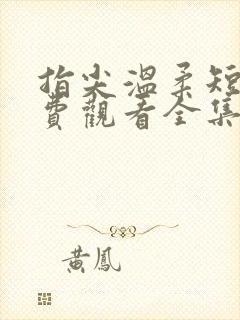 指尖溫柔短
費觀看全集
黃鳳